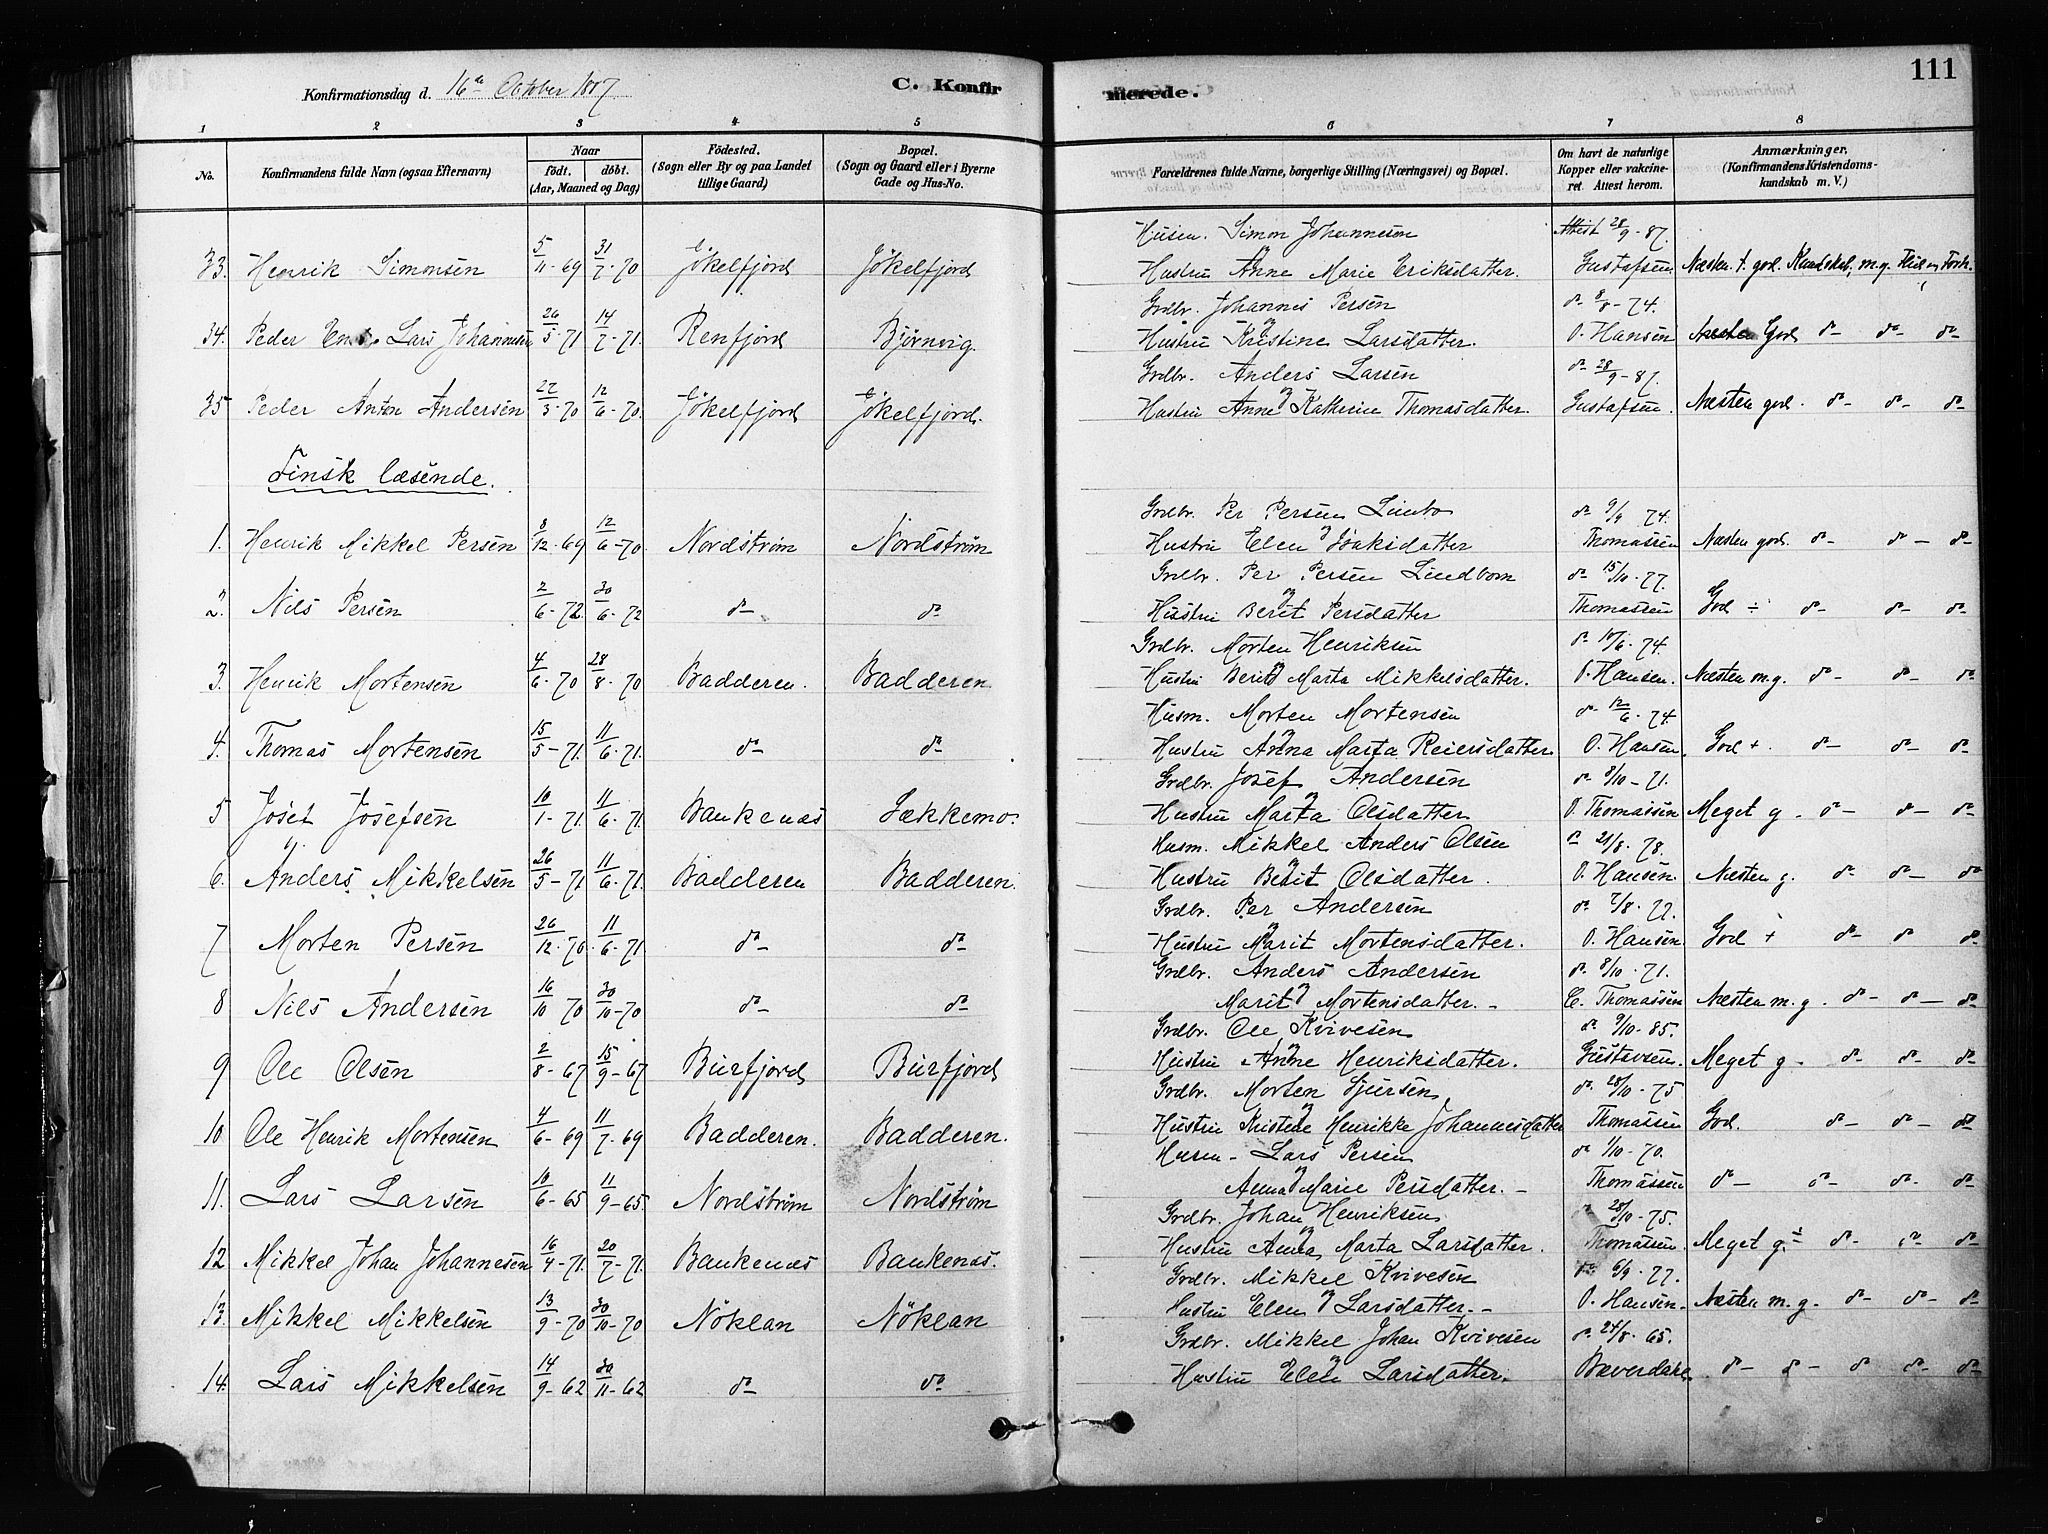 111
Konfirmationsdag d. 16de October 1887
C. Konfirmerede.
1 2 3 4 5 6 7 8
No. Konfirmandens fulde Navn (ogsaa Efternavn) Naar født. døbt. (Aar, Maaned og Dag) Fødested. (Sogn eller By og paa Landet tillige Gaard) Bopæl. (Sogn og Gaard eller i Byerne Gade og Hus-No. Forældrenes fulde Navne, borgerlige Stilling (Næringsvei) og Bopæl. Om havt de naturlige Kopper eller vakcineret. Attest herom. Anmærkninger. (Konfirmandens Kristendomskundskab m. V.)
Husm. Simon Johannesen Attest 28/9-87.
33. Henrik Simonsen 5/11-69 31/7-70 Jökelfjord Jökelfjord Hustru Anne Marie Eriksdatter. Gustafsen Næsten t. god. Kundskab, m.g. Flid og Forh.
Grdbr. Johannes Persen do 8/8-74.
34. Peder Lars Johannesen 26/5-71 14/7-71. Renfjord Bjørnvig. Hustru og Kristine Larsdatter. O. Hansen Næsten God do do do
Grdbr. Anders Larsen do 28/9-87.
35 Peder Anton Andersen 27/3-70 12/6-70. Jökelfjord Jökelfjord. Hustru Anne og Katherine Thomasdatter. Gustafsen. Næsten god. do do do
Finsk læsende.
Grdbr. Per Persen Limbo do 9/9 74.
1. Henrik Mikkel Persen 8/12-69 12/6-70. Nordstrøm Nordstrøm Hustru Elen og Isaksdatter Thomassen Næsten god. do do do
Grdbr. Per Persen Lindbom do 15/10-77.
2. Nils Persen 2/6-72. 30/6-72 do do Hustru og Berit Persdatter Thomassen God ÷ do do do
Grdbr. Morten Henriksen do 10/6-74.
3. Henrik Mortensen 4/6-70 28/8-70 Badderen. Badderen Hustru Berit og Marta Mikkelsdatter. O. Hansen. Næsten m.g. do do do
Husm. Morten Mortensen do 12/6-74.
4. Thomas Mortensen 15/5-71. 11/6-71. do do Hustru og Anna Marta Reiersdatter O. Hansen. God +. do do do
Grdbr. Josef Andersen do 8/10-71.
5 Josef Josefsen 10/1-71. 11/6-71. Baukenæs Sækkemo. Hustru og Marta Olsdatter O. Thomassen Meget g. do do do
Husm. Mikkel Anders Olsen do 21/8-78.
6. Anders Mikkelsen 26/5-71 11/6-71. Badderen Badderen. Hustru og Berit Olsdatter. O. Hansen. Næsten g. do do do
Grdbr. Per Andersen do 7/8-77.
7 Morten Persen 26/12-70. 11/6-71. do do Hustru og Marit Mortensdatter. O. Hansen. God + do do do
Grdbr. Anders Andersen do 8/10-71.
8 Nils Andersen 16/10 70 30/10-70 do do Marit og Mortensdatter. C. Thomassen Næsten m.g. do do do
Grdbr. Ole Kvivesen do 9/10-85.
9 Ole Olsen 2/8-67 15/9-67 Burfjord Burfjord Hustru og Anne Henriksdatter. Gustavsen. Meget g. do do do
Grdbr. Morten Sjursen do 28/10-75
10 Ole Henrik Mortensen 4/6-69 11/7-69 Badderen. Badderen. Hustru og Kristine Henrikke Johannesdatter Thomassen God. do do do
Husm. Lars Persen do 1/10-70.
11. Lars Larsen 10/6-65 11/9-65. Nordstrøm Nordstrøm og Anna Marie Persdatter. Thomassen do do do do
Grdbr. Johan Henriksen do 28/10-75.
12 Mikkel Johan Johannesen 16/4-71. 20/7-71. Baukenæs Baukenæs. Hustru og Anna Marta Larsdatter. Thomassen. Meget g. ÷ do do do
Grdbr. Mikkel Kvivesen do 6/9-77.
13. Mikkel Mikkelsen 13/9-70 30/10-70 Nöklan Nöklan Hustru Elen og Larsdatter. O. Hansen. Næsten m.g. do do do
Grdbr. Mikkel Johan Kvivesen do 24/8-65.
14. Lars Mikkelsen 14/9-62 30/11-62 do do Hustru og Elen Larsdatter. do do do do do